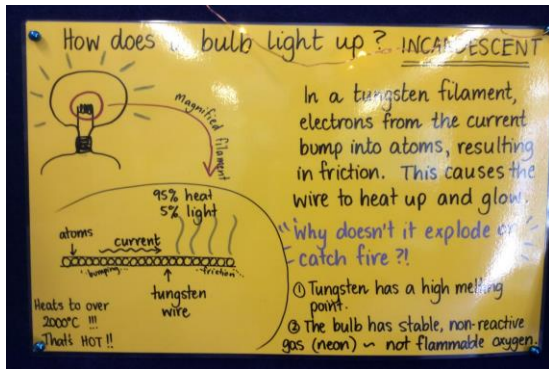 How does a bulb light up? INCANDESCENT
Magnified filament
95% heat
5% light
atoms
current
bumping
friction
tungsten
wire
Heats to over
2000°C !!!
That's HOT!!
In a tungsten filament,
electrons from the current
bump into atoms, resulting
in friction. This causes the
wire to heat up and glow.
"Why doesn't it explode or
catch fire?!
① Tungsten has a high melting
point.
② The bulb has stable, non-reactive
gas (neon) ~ not flammable oxygen.